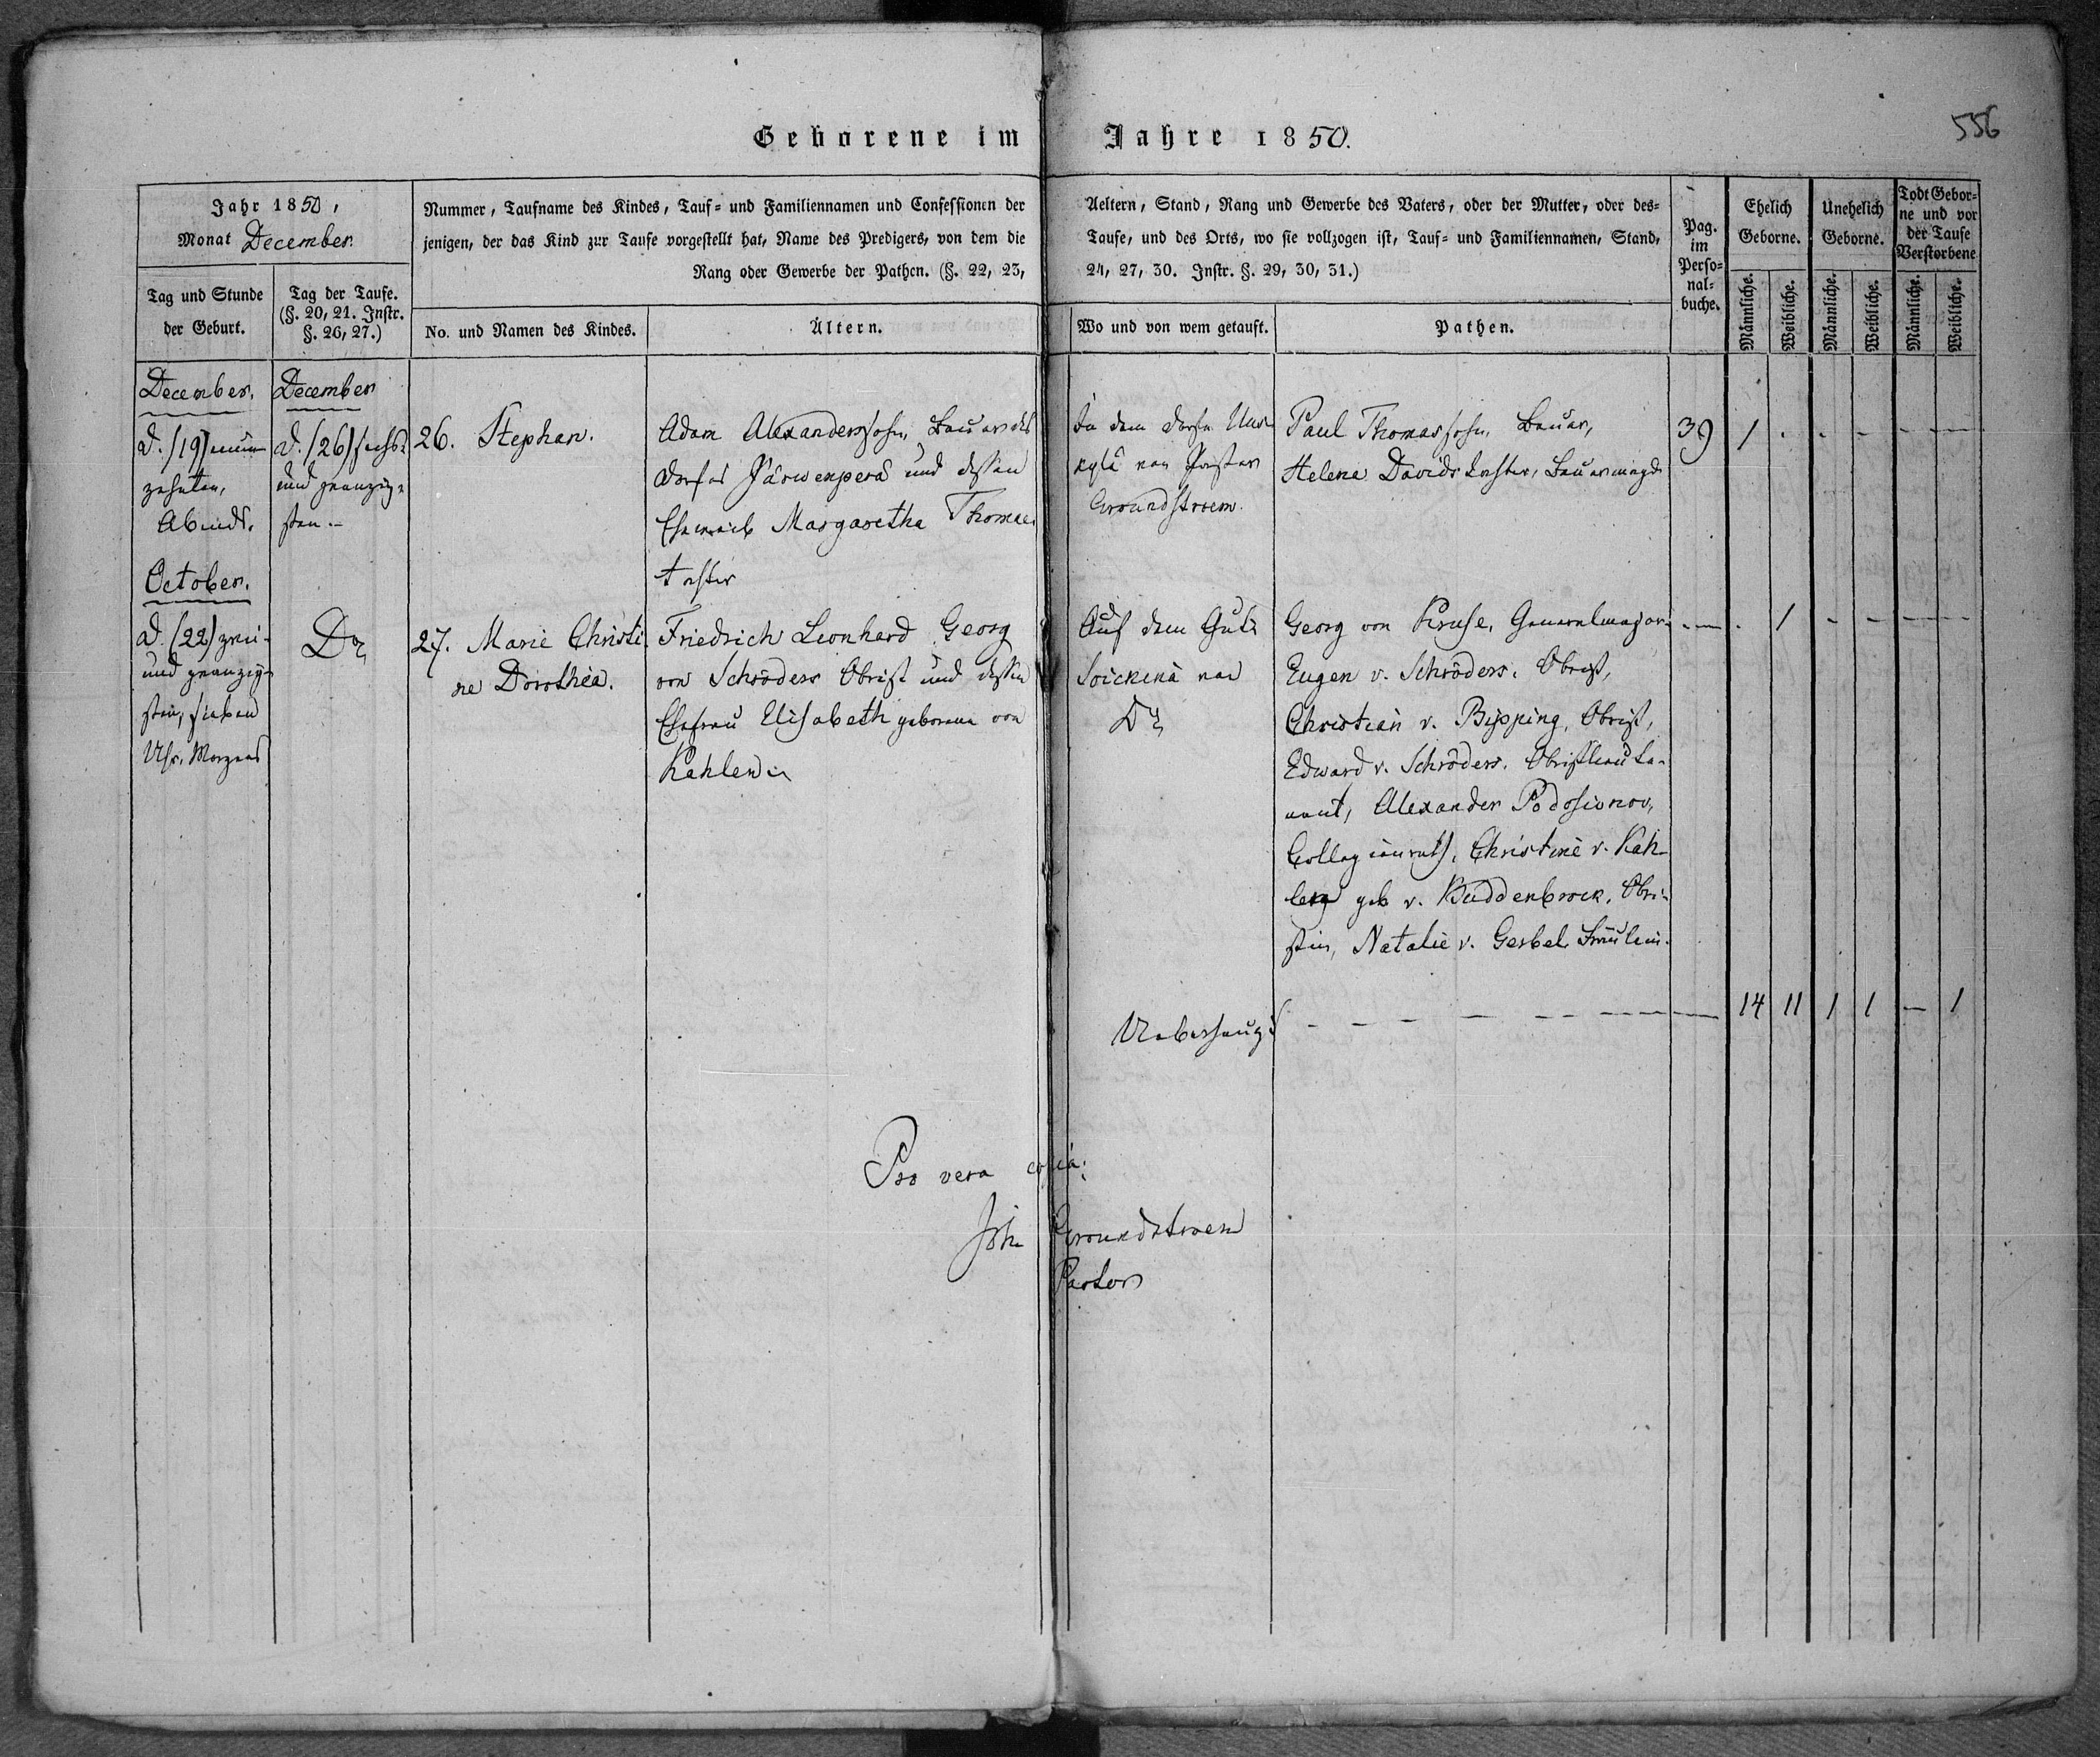 556
Geborene im Jahre 1850.
Jahr 1850,
Monat December
Tag und Stunde
der Geburt.
Tag der Taufe.
(§. 20, 21. Instr.
§. 26, 27.)
Nummer, Taufname des Kindes, Tauf- und Familiennamen und Confessionen der Aeltern, Stand, Rang und Gewerbe des Vaters, oder der Mutter, oder des-
jenigen, der das Kind zur Taufe vorgestellt hat, Name des Predigers, von dem die Taufe, und des Orts, wo sie vollzogen ist, Tauf- und Familiennamen, Stand,
Rang oder Gewerbe der Pathen. (§. 22, 23, 24, 27, 30. Instr. §. 29, 30, 31.)
No. und Namen des Kindes.
Ältern.
Wo und von wem getauft.
Pathen.
Pag.
im
Perso-
nal-
buche.
Ehelich
Geborne.
Unehelich
Geborne.
Todt Gebor-
ne und vor
der Taufe
Verstorbene
Männliche.
Weibliche.
Männliche.
Weibliche.
Männliche.
Weibliche.
December.
d. (19) neun
zehnten,
Abends.
December
d. (26) sechs-
und zwanzig-
sten.
26. Stephan.
Adam Alexandersohn, Bauer des
Dorfes Järwenperä und dessen
Eheweib Margaretha Thomas
tochter
In dem Dorfe
von Pastor
Groundstroem.
Paul Thomassohn, Bauer,
Helena Davidstochter, Bauermagd
39 1 . - - - -
October.
d. (22) zwei-
und zwanzig-
sten, sieben
Uhr. Morgens
Do
27. Marie Christi-
ne Dorothea.
Friedrich Leonhard Georg
von Schröders Obrist und dessen
Ehefrau Elisabeth geborene von
Kahlen
Auf dem Gute
Soickina von
Do
Georg von Kruse, Generalmajor
Eugen v. Schröders, Obrist,
Christian v. Bipping, Obrist,
Edward v. Schröders, Obristleute-
nant, Alexander Podosionov,
Collegienrath, Christine v. Kah-
len geb v. Buddenbrock, Obri-
stin, Natalie v. Gerbel, Fräulein.
- . 1 - - - -
Ueberhaupt - - - - - - 14 11 1 1 - 1
Pro vera copia:
Joh Groundstroem
Pastor